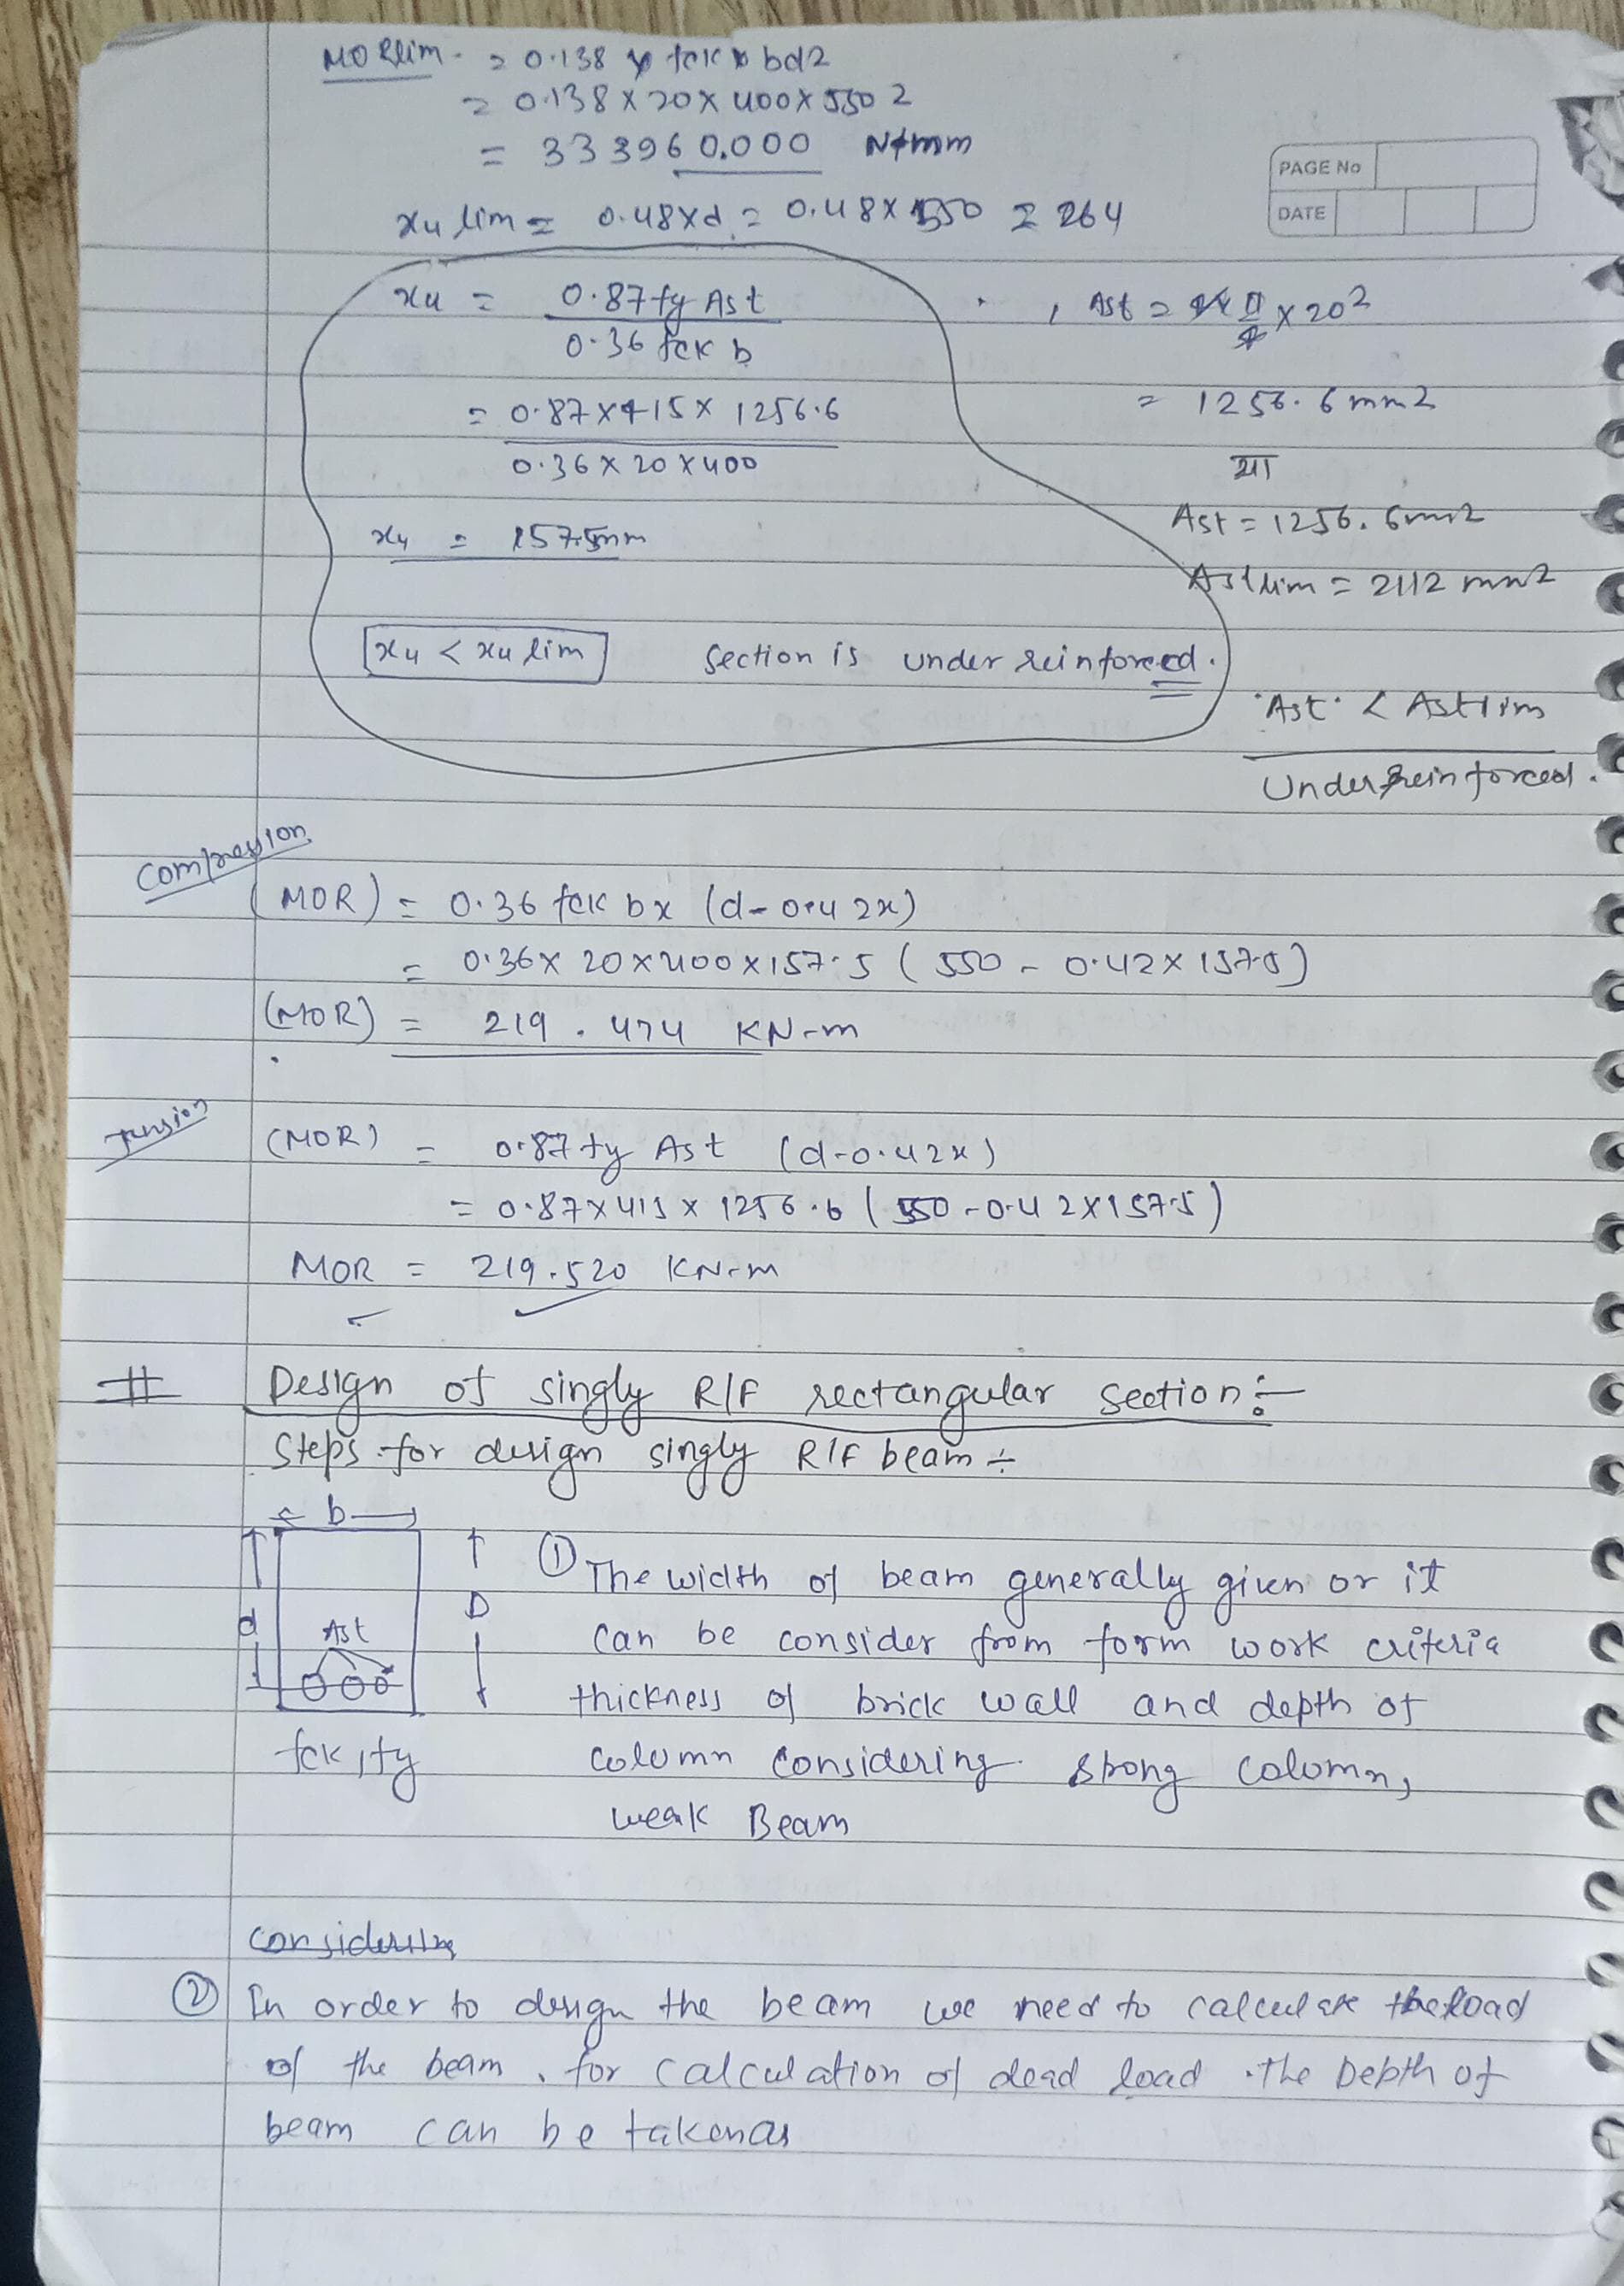 MORlim. = 0.138 x fck x bd2
= 0.138 x 20 x 400 x 550 2
= 333960.000 N*mm
PAGE No
DATE
xu lim = 0.48xd = 0.48 x 550 = 264
xu = 0.87 fy Ast
0.36 fck b
, Ast = 4x π/4 x 20²
= 0.87 x 415 x 1256.6
0.36 x 20 x 400
= 1256.6 mm2
या
xu = 157.5mm
Ast = 1256.6mm2
Astlim = 2112 mm2
xu < xu lim section is under reinforced.
Ast < Astlim
Under Reinforced.
Compression
(MOR) = 0.36 fck bx (d-0.42x)
= 0.36 x 20 x 400 x 157.5 (550 - 0.42 x 157.5)
(MOR) = 219.474 KN-m
Tension
(MOR) = 0.87 fy Ast (d-0.42x)
= 0.87 x 415 x 1256.6 (550-0.42x157.5)
MOR = 219.520 KN-m
# Design of singly R/F rectangular section:-
Steps for design singly R/F beam:-
b
d
D
Ast
fck, fy
① The width of beam generally given or it
can be consider from form work criteria
thickness of brick wall and depth of
column considering strong column,
weak Beam
considering
② In order to design the beam we need to calculate the load
of the beam. for calculation of dead load. the Depth of
beam can be taken as